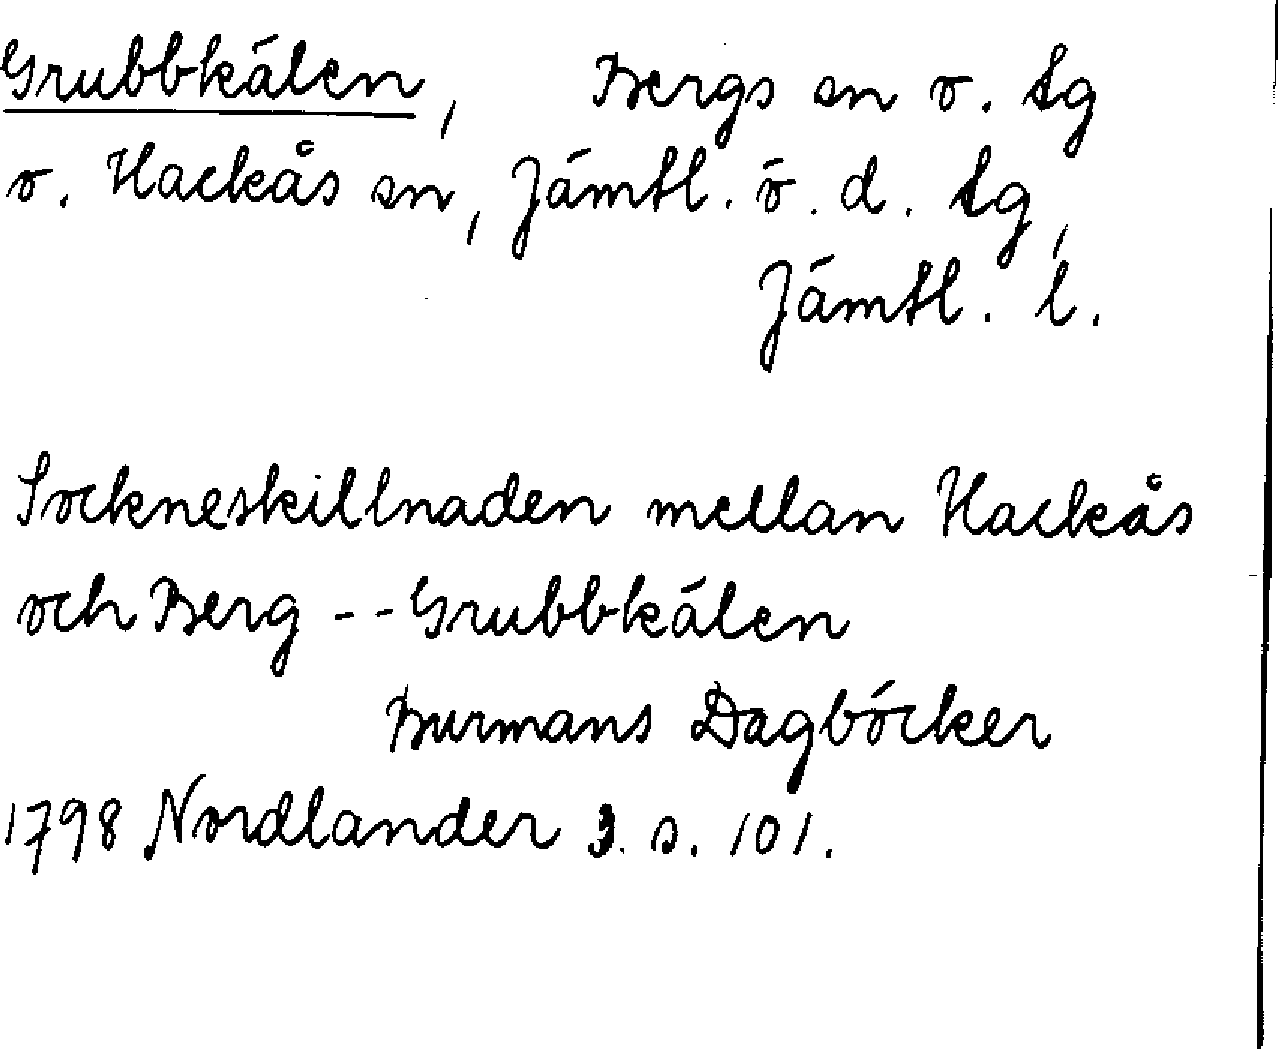 Grubbkälen, Bergs sn o. tg
o. Hackås sn, Jämtl. ö. d. tg,
Jämtl. l.
Sockneskillnaden mellan Hackås
och Berg -- Grubbkälen
Burmans Dagböcker
1798 Nordlander 3. s. 101.